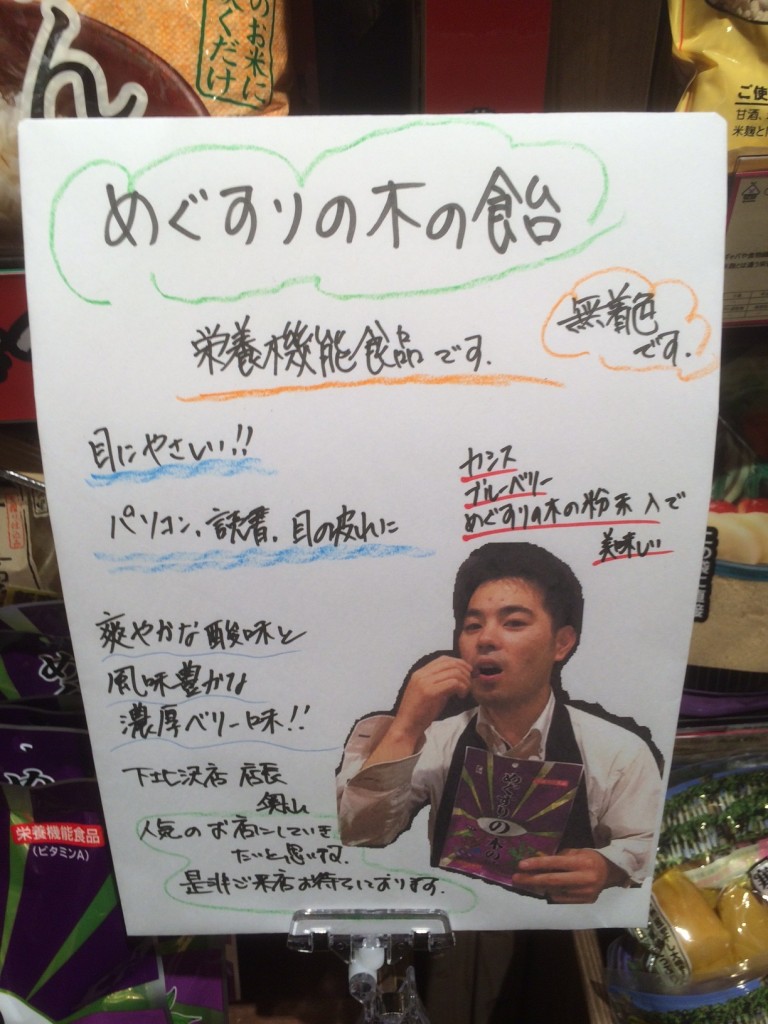 のお米に
炊くだけ
ん
ご使
甘酒、
米麹と
めぐすりの木の飴
栄養機能食品です.
無着色
です.
目にやさしい!!
パソコン、読書、目の疲れに
カシス
ブルーベリー
めぐすりの木の粉末入で
美味しい
爽やかな酸味と
風味豊かな
濃厚ベリー味!!
下北沢店 店長
奥山
人気のお店にしていき
たいと思います.
是非ご来店お待ちしております.
めぐすりの木の
栄養機能食品
(ビタミンA)